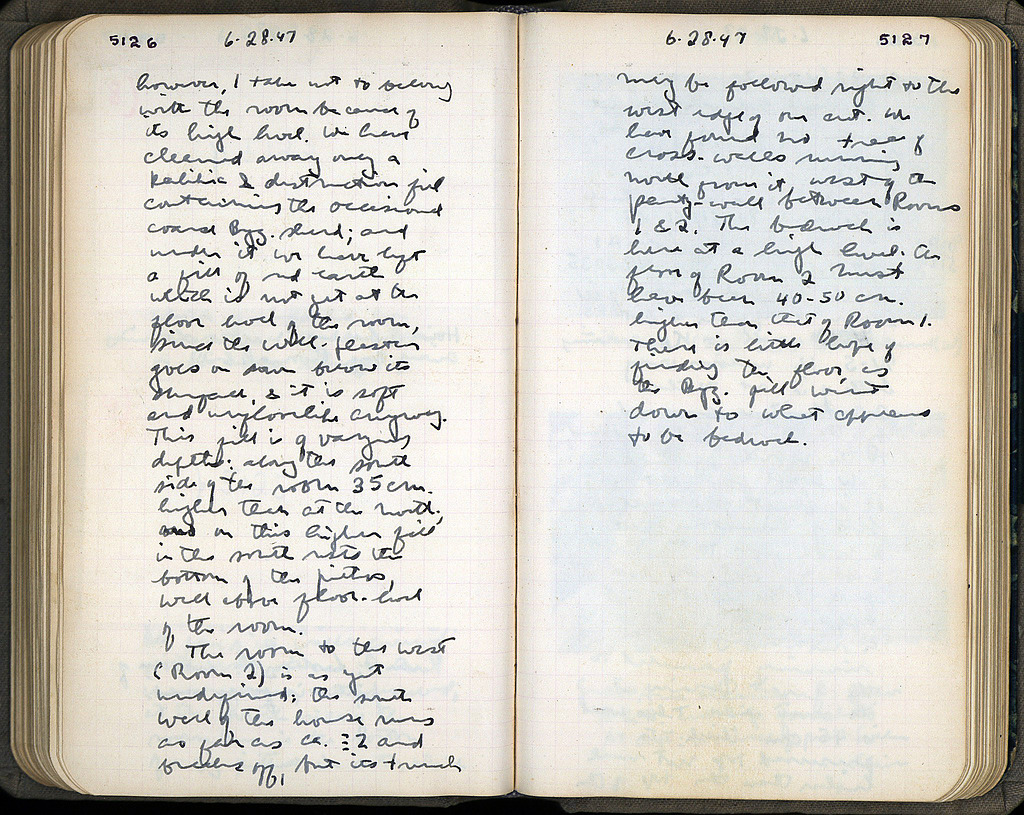 5126 6.28.47
however, I take not to belong
with the room because of
its high level. We have
cleaned away only a
kalibia & destruction fill
containing the occasional
coarse Byz. sherd; and
under it we have left
a fill of red earth
which is not yet at the
floor level of the room,
since the wall-plaster
goes on down below its
surface, & it is soft
and unfloorlike anyway.
This fill is of varying
depths: along the south
side of the room 35 cm.
higher than at the north;
and on this higher fill
in the south rests the
bottom of the pithos,
well above floor-level
of the room.
The room to the west
(Room 2) is as yet
undefined: the south
wall of the house runs
as far as ca. 2 and
breaks off, but its trench
6.28.47 5127
may be followed right to the
west edge of our cut. We
have found no trace of
cross-walls running
north from it west of the
party-wall between Rooms
1 & 2. The bedrock is
here at a high level. The
floor of Room 2 must
have been 40-50 cm.
higher than that of Room 1.
There is little hope of
finding the floor, as
the Byz. fill went
down to what appears
to be bedrock.